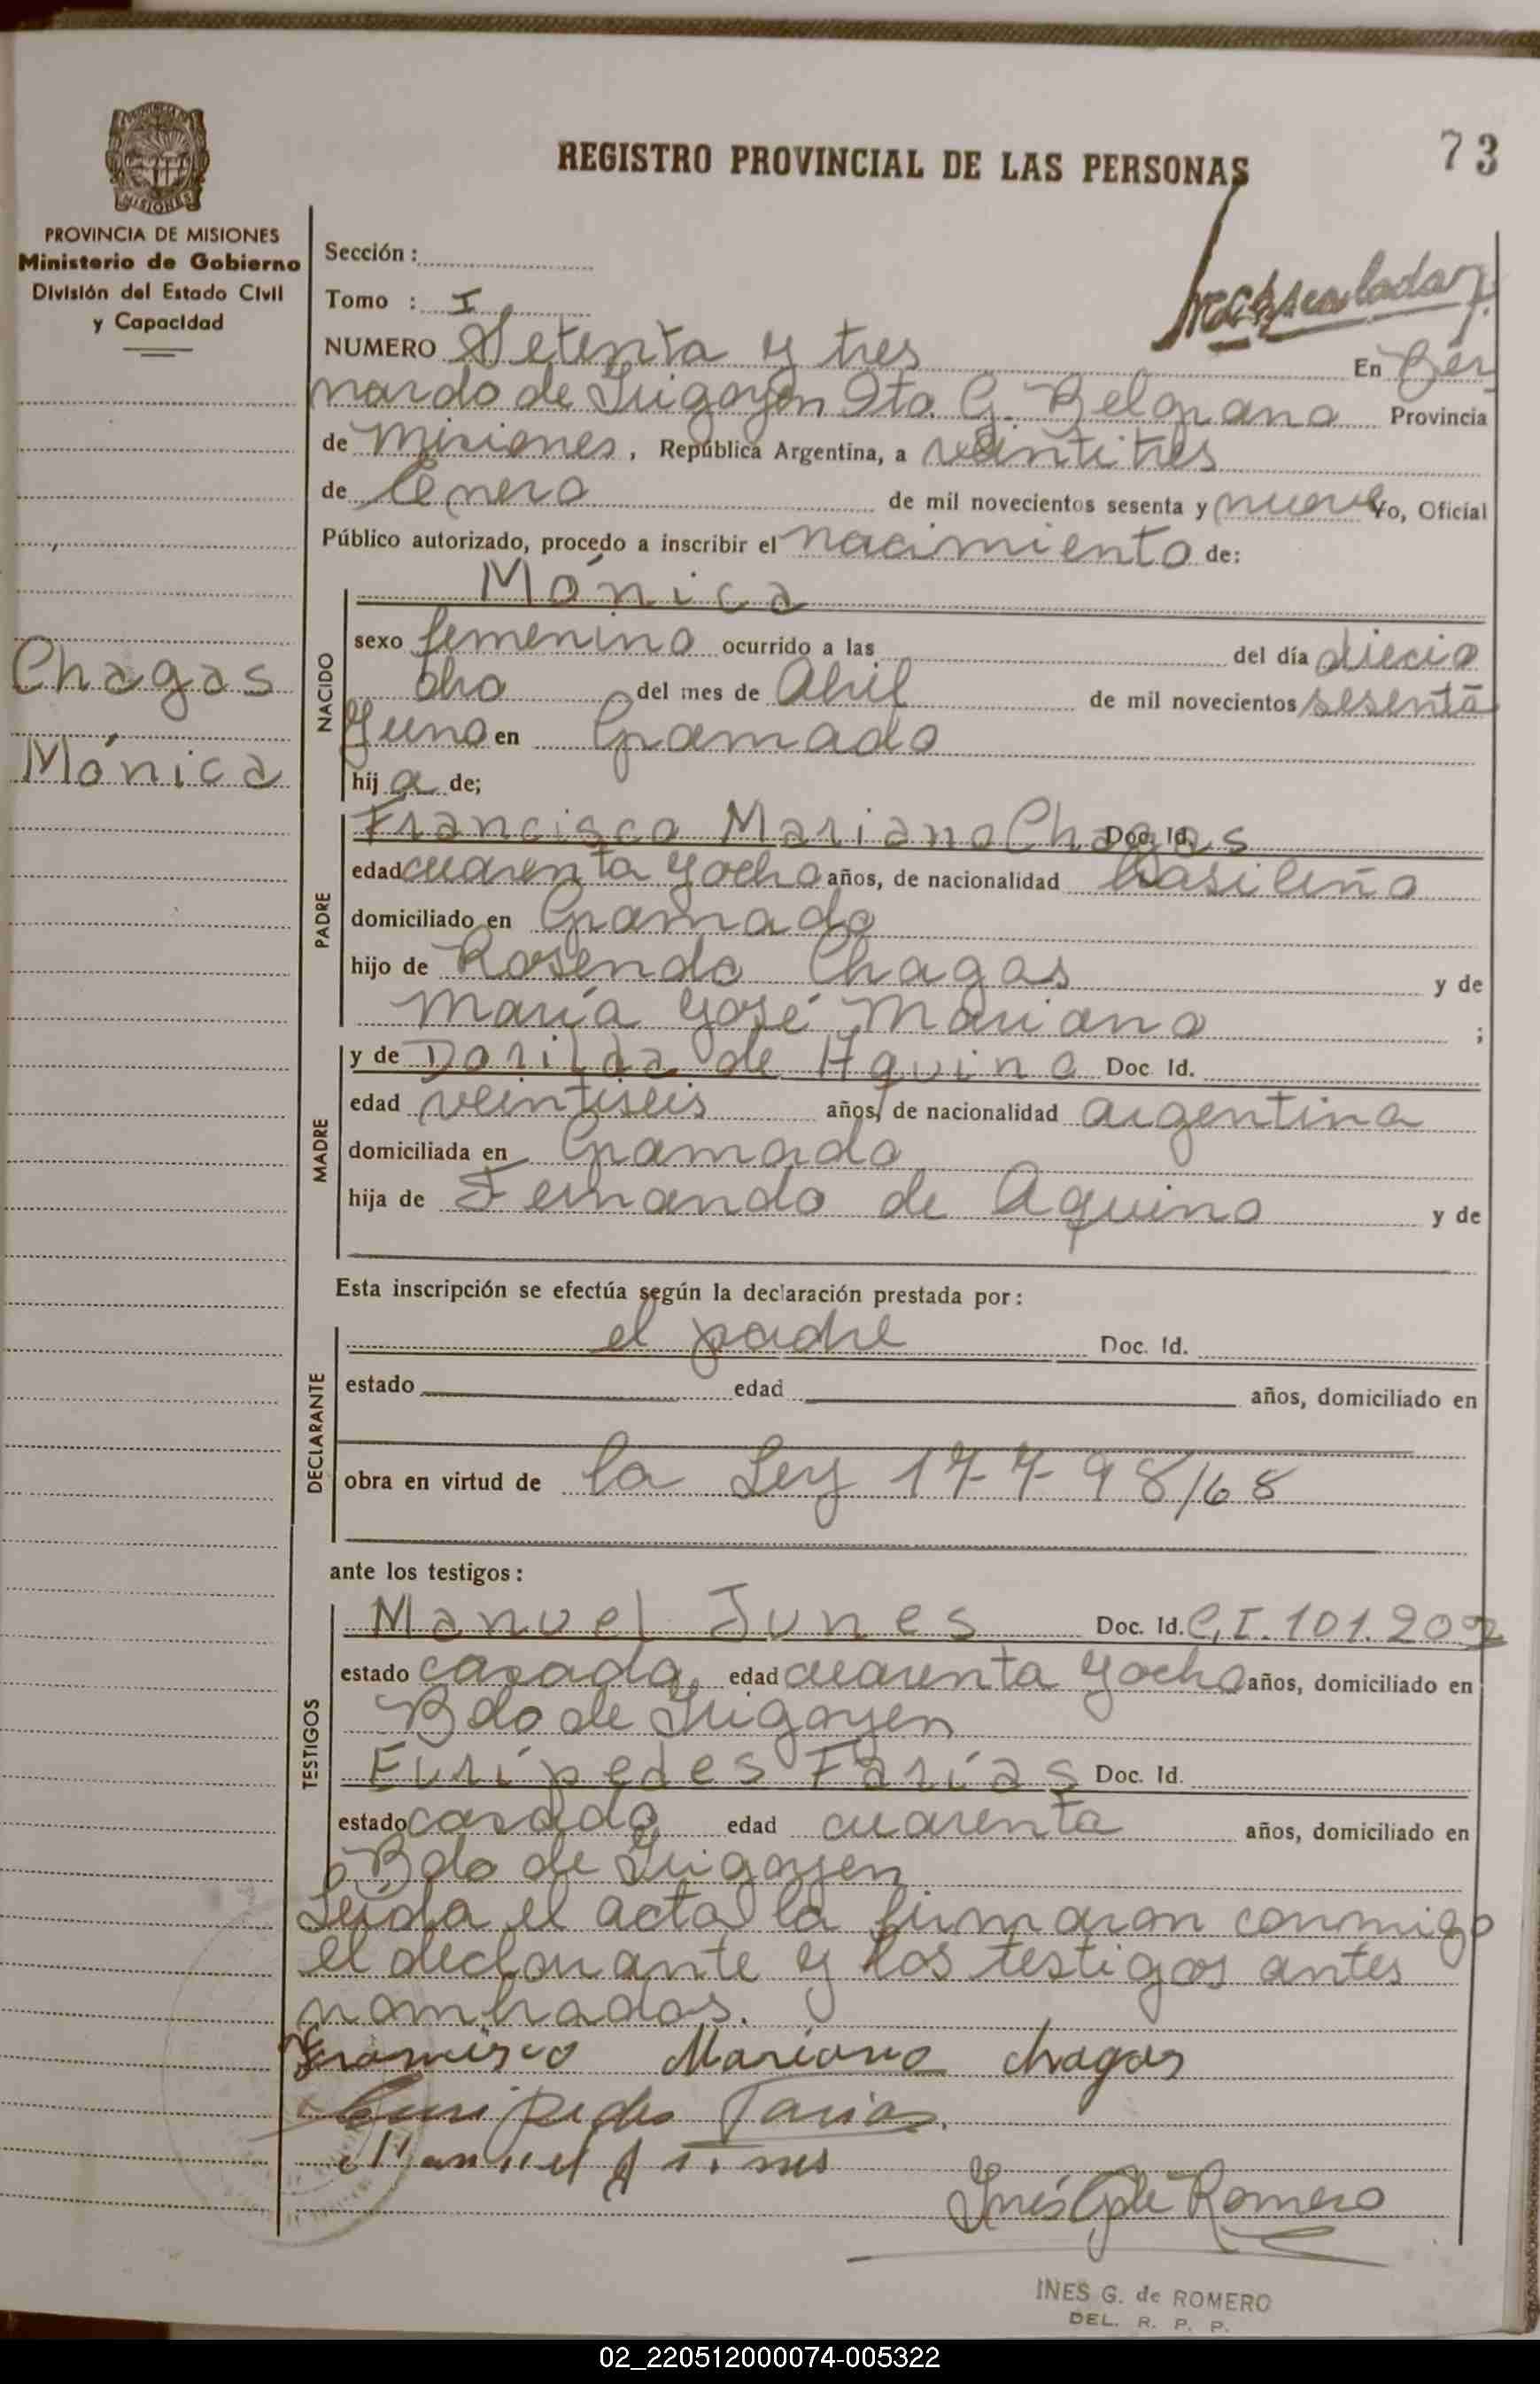 73
REGISTRO PROVINCIAL DE LAS PERSONAS
MISIONES
PROVINCIA DE MISIONES
Ministerio de Gobierno
División del Estado Civil
y Capacidad
Chagas
Mónica
Sección :
Tomo : I
NUMERO Setenta y tres En Ber
nardo de Irigoyen Dto. G. Belgrano Provincia
de Misiones, República Argentina, a veintitres
de Enero de mil novecientos sesenta y nueve Yo, Oficial
Público autorizado, procedo a inscribir el nacimiento de:
Mónica
NACIDO
sexo femenino ocurrido a las del día diecio
cho del mes de Abril de mil novecientos sesenta
y uno en Gramado
hij a de;
PADRE
Francisco Mariano Chagas Doc. Id.
edad cuarenta y ocho años, de nacionalidad brasileño
domiciliado en Gramado
hijo de Rosendo Chagas y de
María José Mariano ;
MADRE
y de Dorilda de Aquino Doc. Id.
edad veintiseis años, de nacionalidad argentina
domiciliada en Gramado
hija de Fernando de Aquino y de
Esta inscripción se efectúa según la declaración prestada por :
DECLARANTE
el padre Doc. Id.
estado edad años, domiciliado en
obra en virtud de la Ley 17798/68
ante los testigos :
TESTIGOS
Manuel Junes Doc. Id. C.I. 101.202
estado casado edad cuarenta y ocho años, domiciliado en
Bdo de Irigoyen
Eurípedes Farías Doc. Id.
estado casado edad cuarenta años, domiciliado en
Bdo de Irigoyen
Leída el acta la firmaron conmigo
el declarante y los testigos antes
nombrados.
Francisco Mariano chagas
Euripedes Farias.
Manuel Junes
Inés G de Romero
INES G. de ROMERO
DEL. R. P. P.
02_220512000074-005322